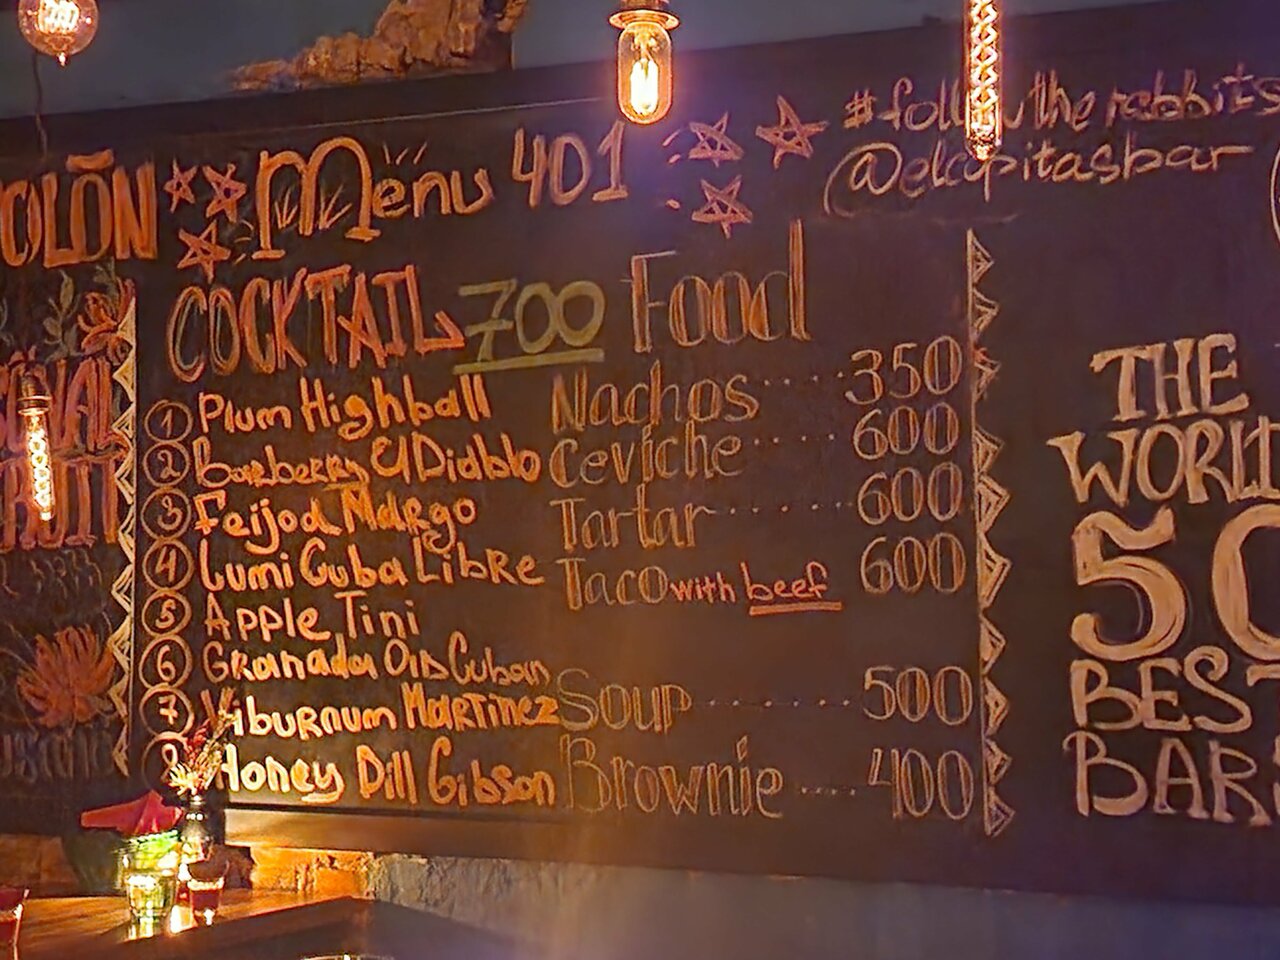 COLŌN
Menu 401
#follow the rabbits
@elcopitasbar
COCKTAIL 700
① Plum Highball
② Barberry El Diablo
③ Feijoa Margo
④ Lumi Cuba Libre
⑤ Apple Tini
⑥ Granada Old Cuban
⑦ Viburnum Martinez
⑧ Honey Dill Gibson
Food
Nachos ..... 350
Ceviche ..... 600
Tartar ...... 600
Taco with beef 600
Soup ....... 500
Brownie .... 400
THE
WORLD
50
BEST
BARS